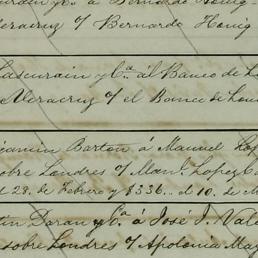 á Bernardo Honig
Veracruz o/ Bernardo Honig
Lascurain y Cª. al Banco de Lo
Veracruz o/ el Banco de Lon
jamin Barton á Manuel Lop
sobre Londres o/ Manl. Lopez C
28 de Febrero y $336.. el 10. de M
tin Daran y Cª á José J. Vale
sobre Londres o/ Apolonia Ma